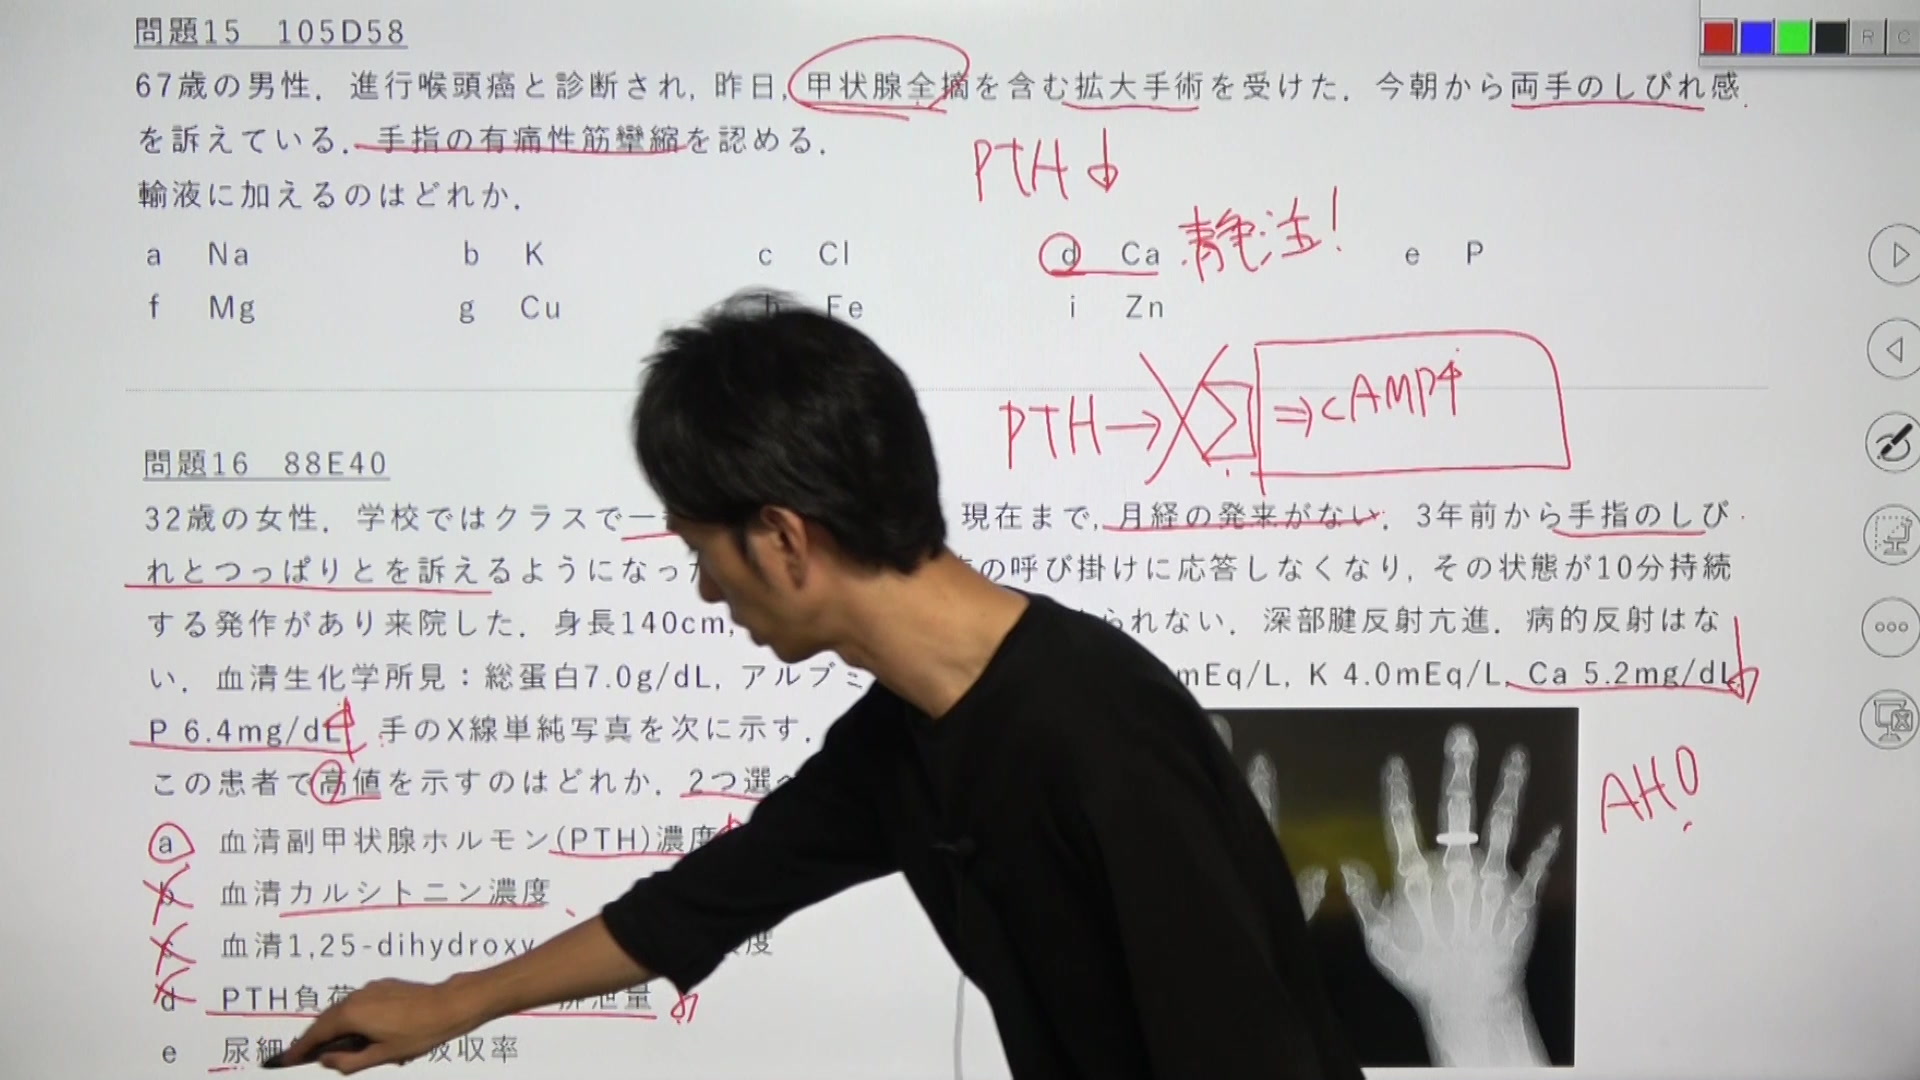 問題15 105D58
67歳の男性．進行喉頭癌と診断され, 昨日, 甲状腺全摘を含む拡大手術を受けた．今朝から両手のしびれ感
を訴えている．手指の有痛性筋攣縮を認める．
PTH↓
輸液に加えるのはどれか．
a Na b K c Cl d Ca 静注! e P
f Mg g Cu h Fe i Zn
PTH→ ⇒cAMP↑
問題16 88E40
32歳の女性．学校ではクラスで一 現在まで, 月経の発来がない．3年前から手指のしび
れとつっぱりとを訴えるようになった の呼び掛けに応答しなくなり, その状態が10分持続
する発作があり来院した．身長140cm, られない．深部腱反射亢進．病的反射はな
い．血清生化学所見：総蛋白7.0g/dL, アルブミ mEq/L, K 4.0mEq/L, Ca 5.2mg/dL ↓
P 6.4mg/dL ↑．手のX線単純写真を次に示す．
この患者で高値を示すのはどれか．2つ選べ
AHO
a 血清副甲状腺ホルモン(PTH)濃度
b 血清カルシトニン濃度
c 血清1,25-dihydroxy 濃度
d PTH負荷 排泄量 ↓
e 尿細 吸収率
R C